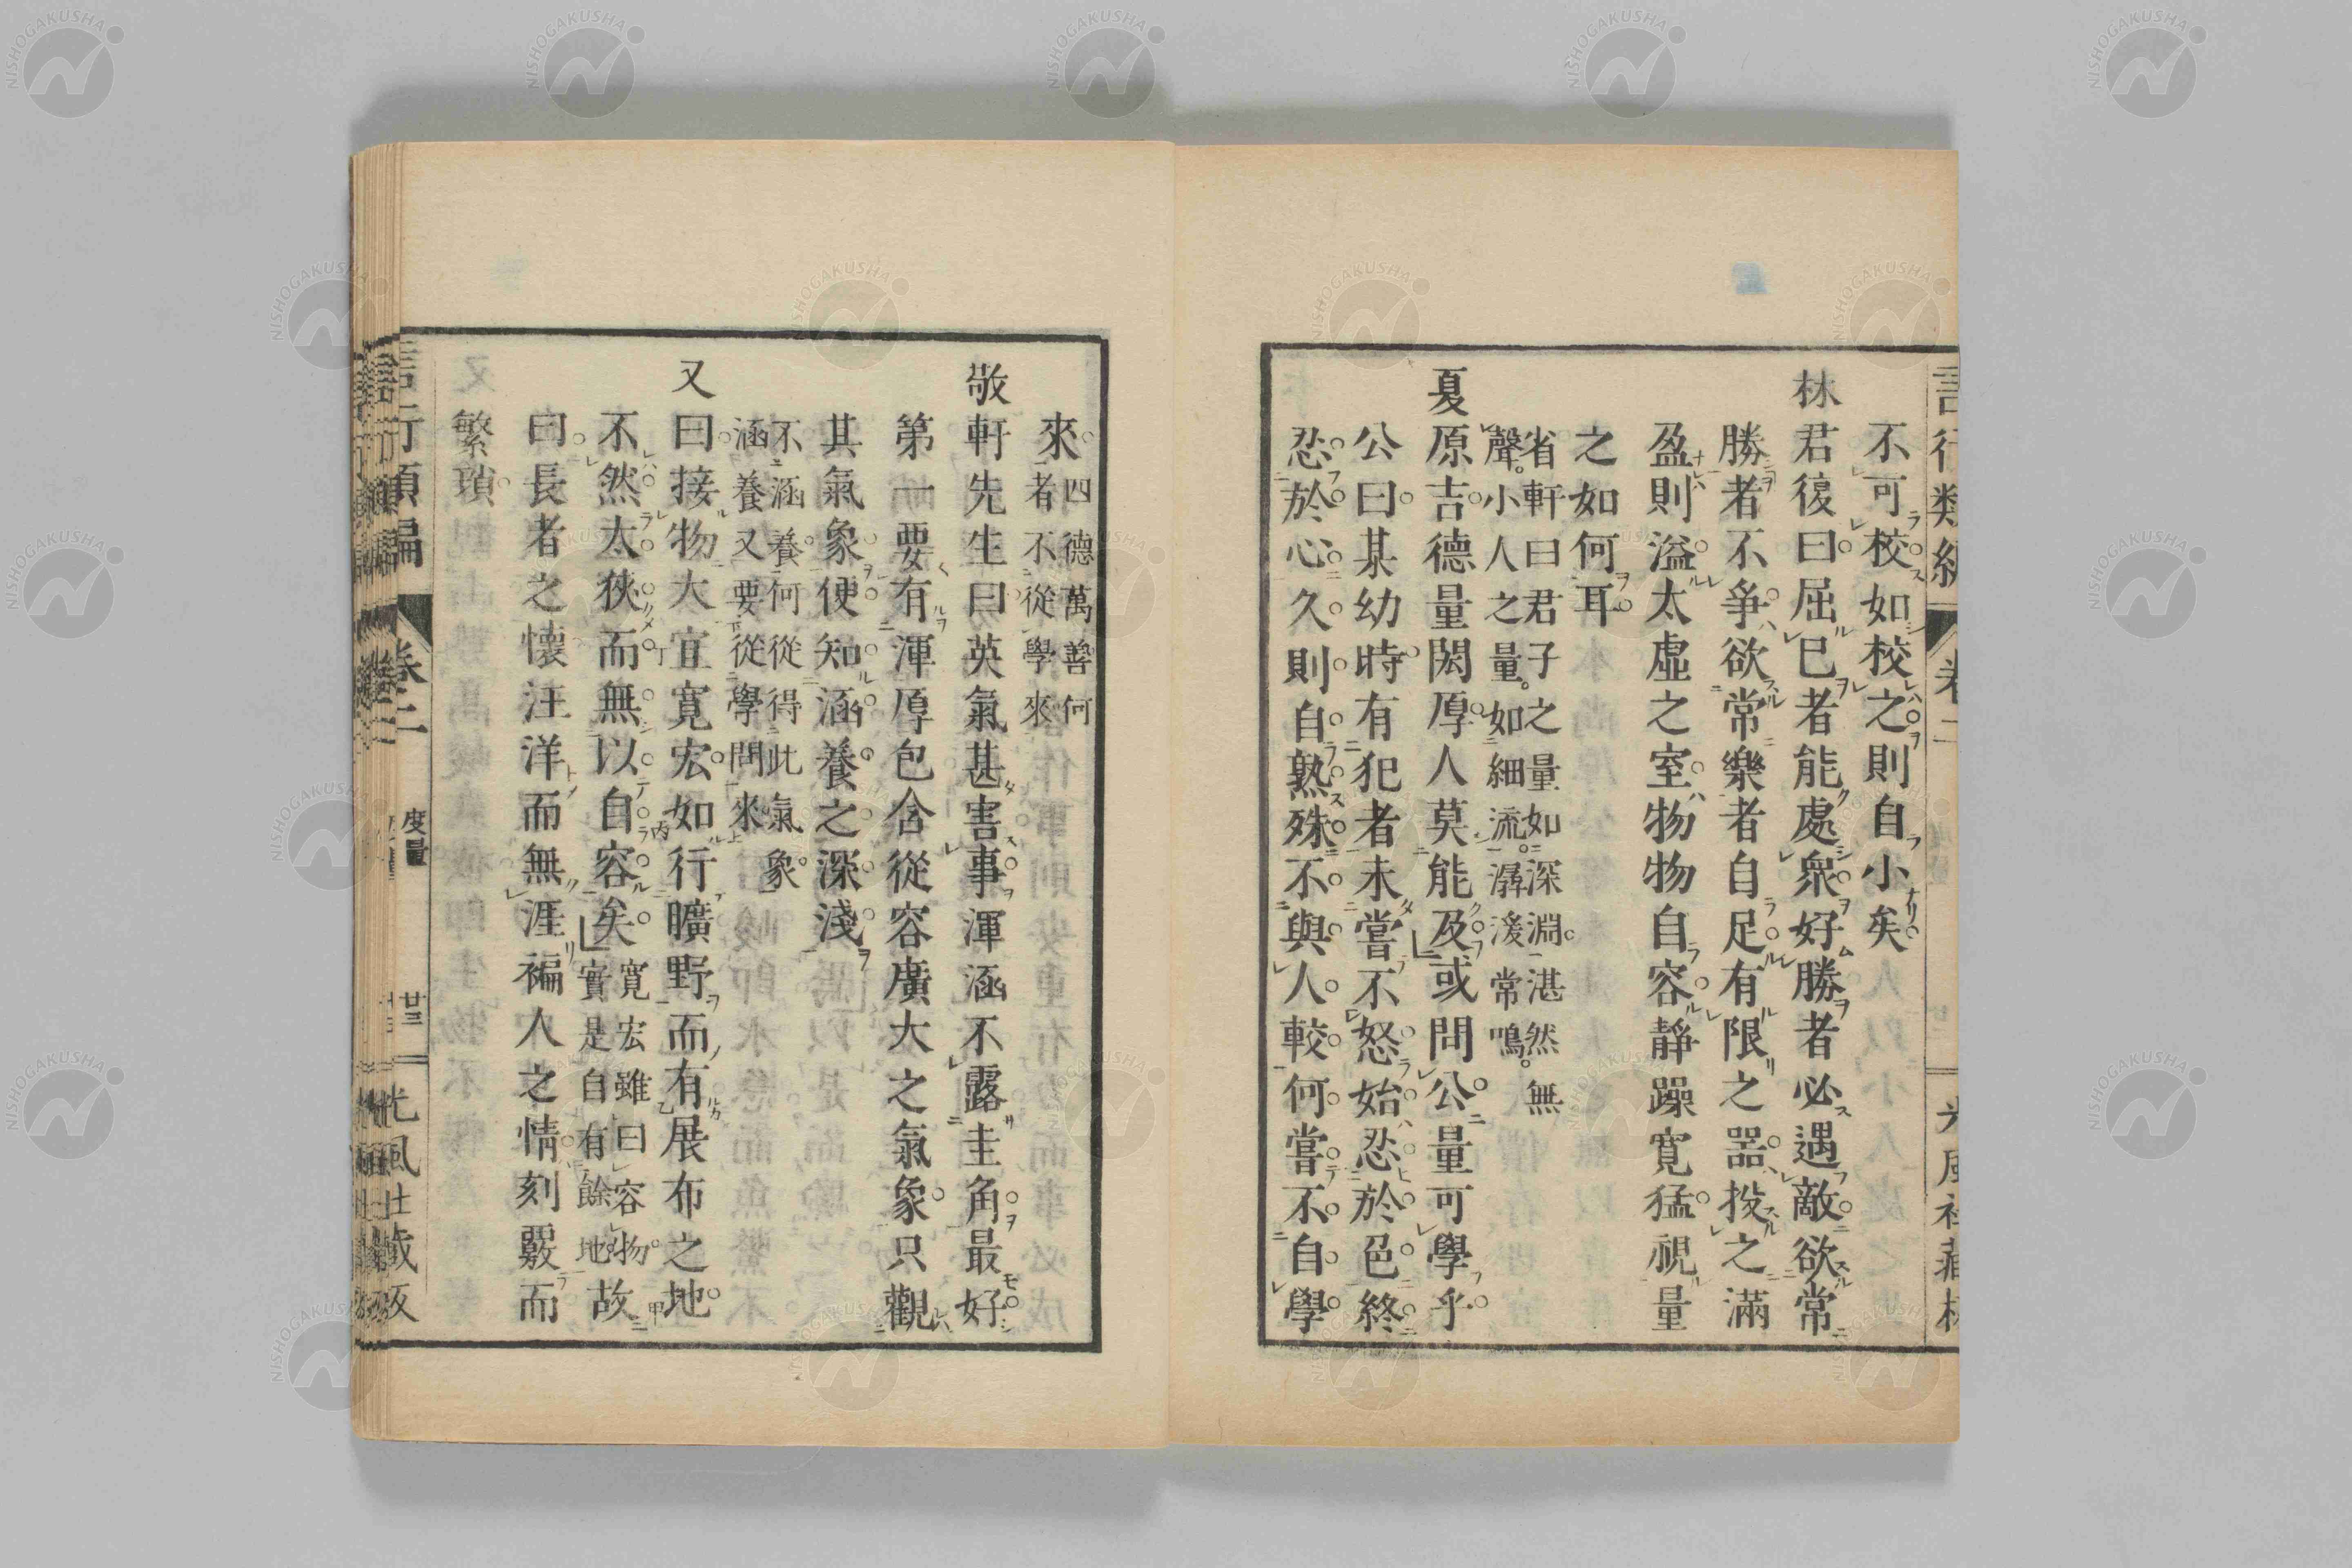 不可校如校之則自小矣
林君復曰屈已者能處衆好勝者必遇敵欲常
勝者不爭欲常樂者自足有限之器投之滿
盈則溢太虛之室物物自容靜躁寬猛視量
之如何耳
省軒曰君子之量如深淵湛然無
聲小人之量如細流潺湲常鳴
夏原吉德量閎厚人莫能及或問公量可學乎
公曰某幼時有犯者未嘗不怒始忍於色終
忍於心久則自熟殊不與人較何嘗不自學
來
四德萬善何
者不從學來
敬軒先生曰英氣甚害事渾涵不露圭角最好
第一要有渾厚包含從容廣大之氣象只觀
其氣象便知涵養之深淺
不涵養何從得此氣象
涵養又要從學問來
又曰接物大宜寬宏如行曠野而有展布之地
不然太狹而無以自容矣
寬宏雖曰容物
實是自有餘地
故
曰長者之懷汪洋而無涯褊人之情刻覈而
繁瑣
言行類編 卷二 度量 廿三 光風社藏板
NISHOGAKUSHA